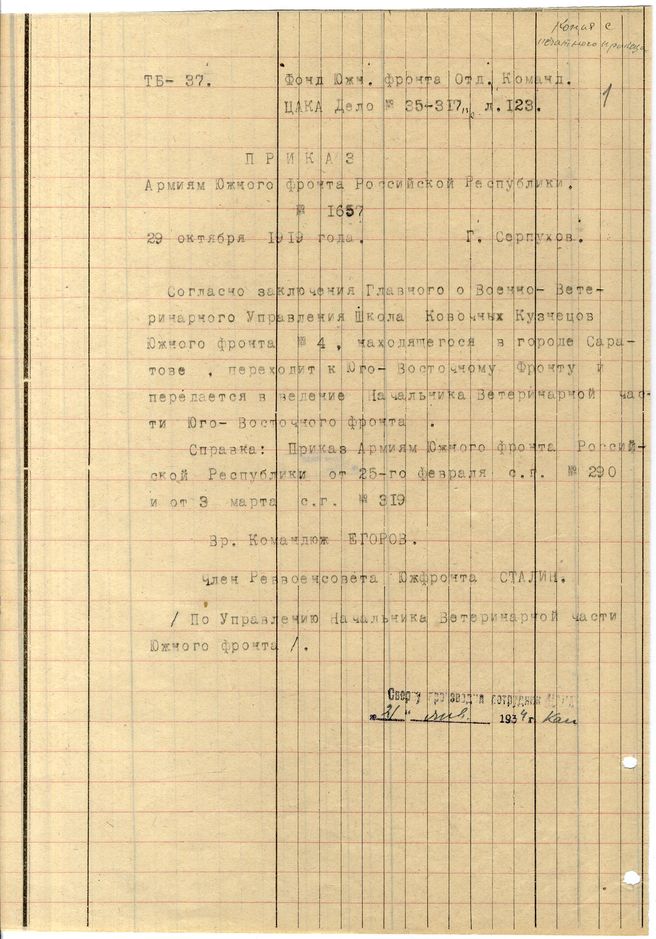 Копия с
печатного
ТБ- 37. Фонд Южн. фронта Отд. Команд.
ЦАКА Дело № 35-317,, л. 123.
1
ПРИКАЗ
Армиям Южного фронта Российской Республики.
№ 1657
29 октября 1919 года. Г. Серпухов.
Согласно заключения Главного о Военно- Вете-
ринарного Управления Школа Ковочных Кузнецов
Южного фронта № 4, находящегося в городе Сара-
тове , переходит к Юго- Восточному Фронту и
передается в ведение Начальника Ветеринарной час-
ти Юго- Восточного фронта .
Справка: Приказ Армиям Южного фронта Россий-
ской Республики от 25-го февраля с.г. № 290
и от 3 марта с.г. № 319
Вр. Командюж ЕГОРОВ.
Член Реввоенсовета Южфронта СТАЛИН.
/ По Управлению Начальника Ветеринарной части
Южного фронта /.
Сверку производил сотрудник
"21" янв. 1934 г.